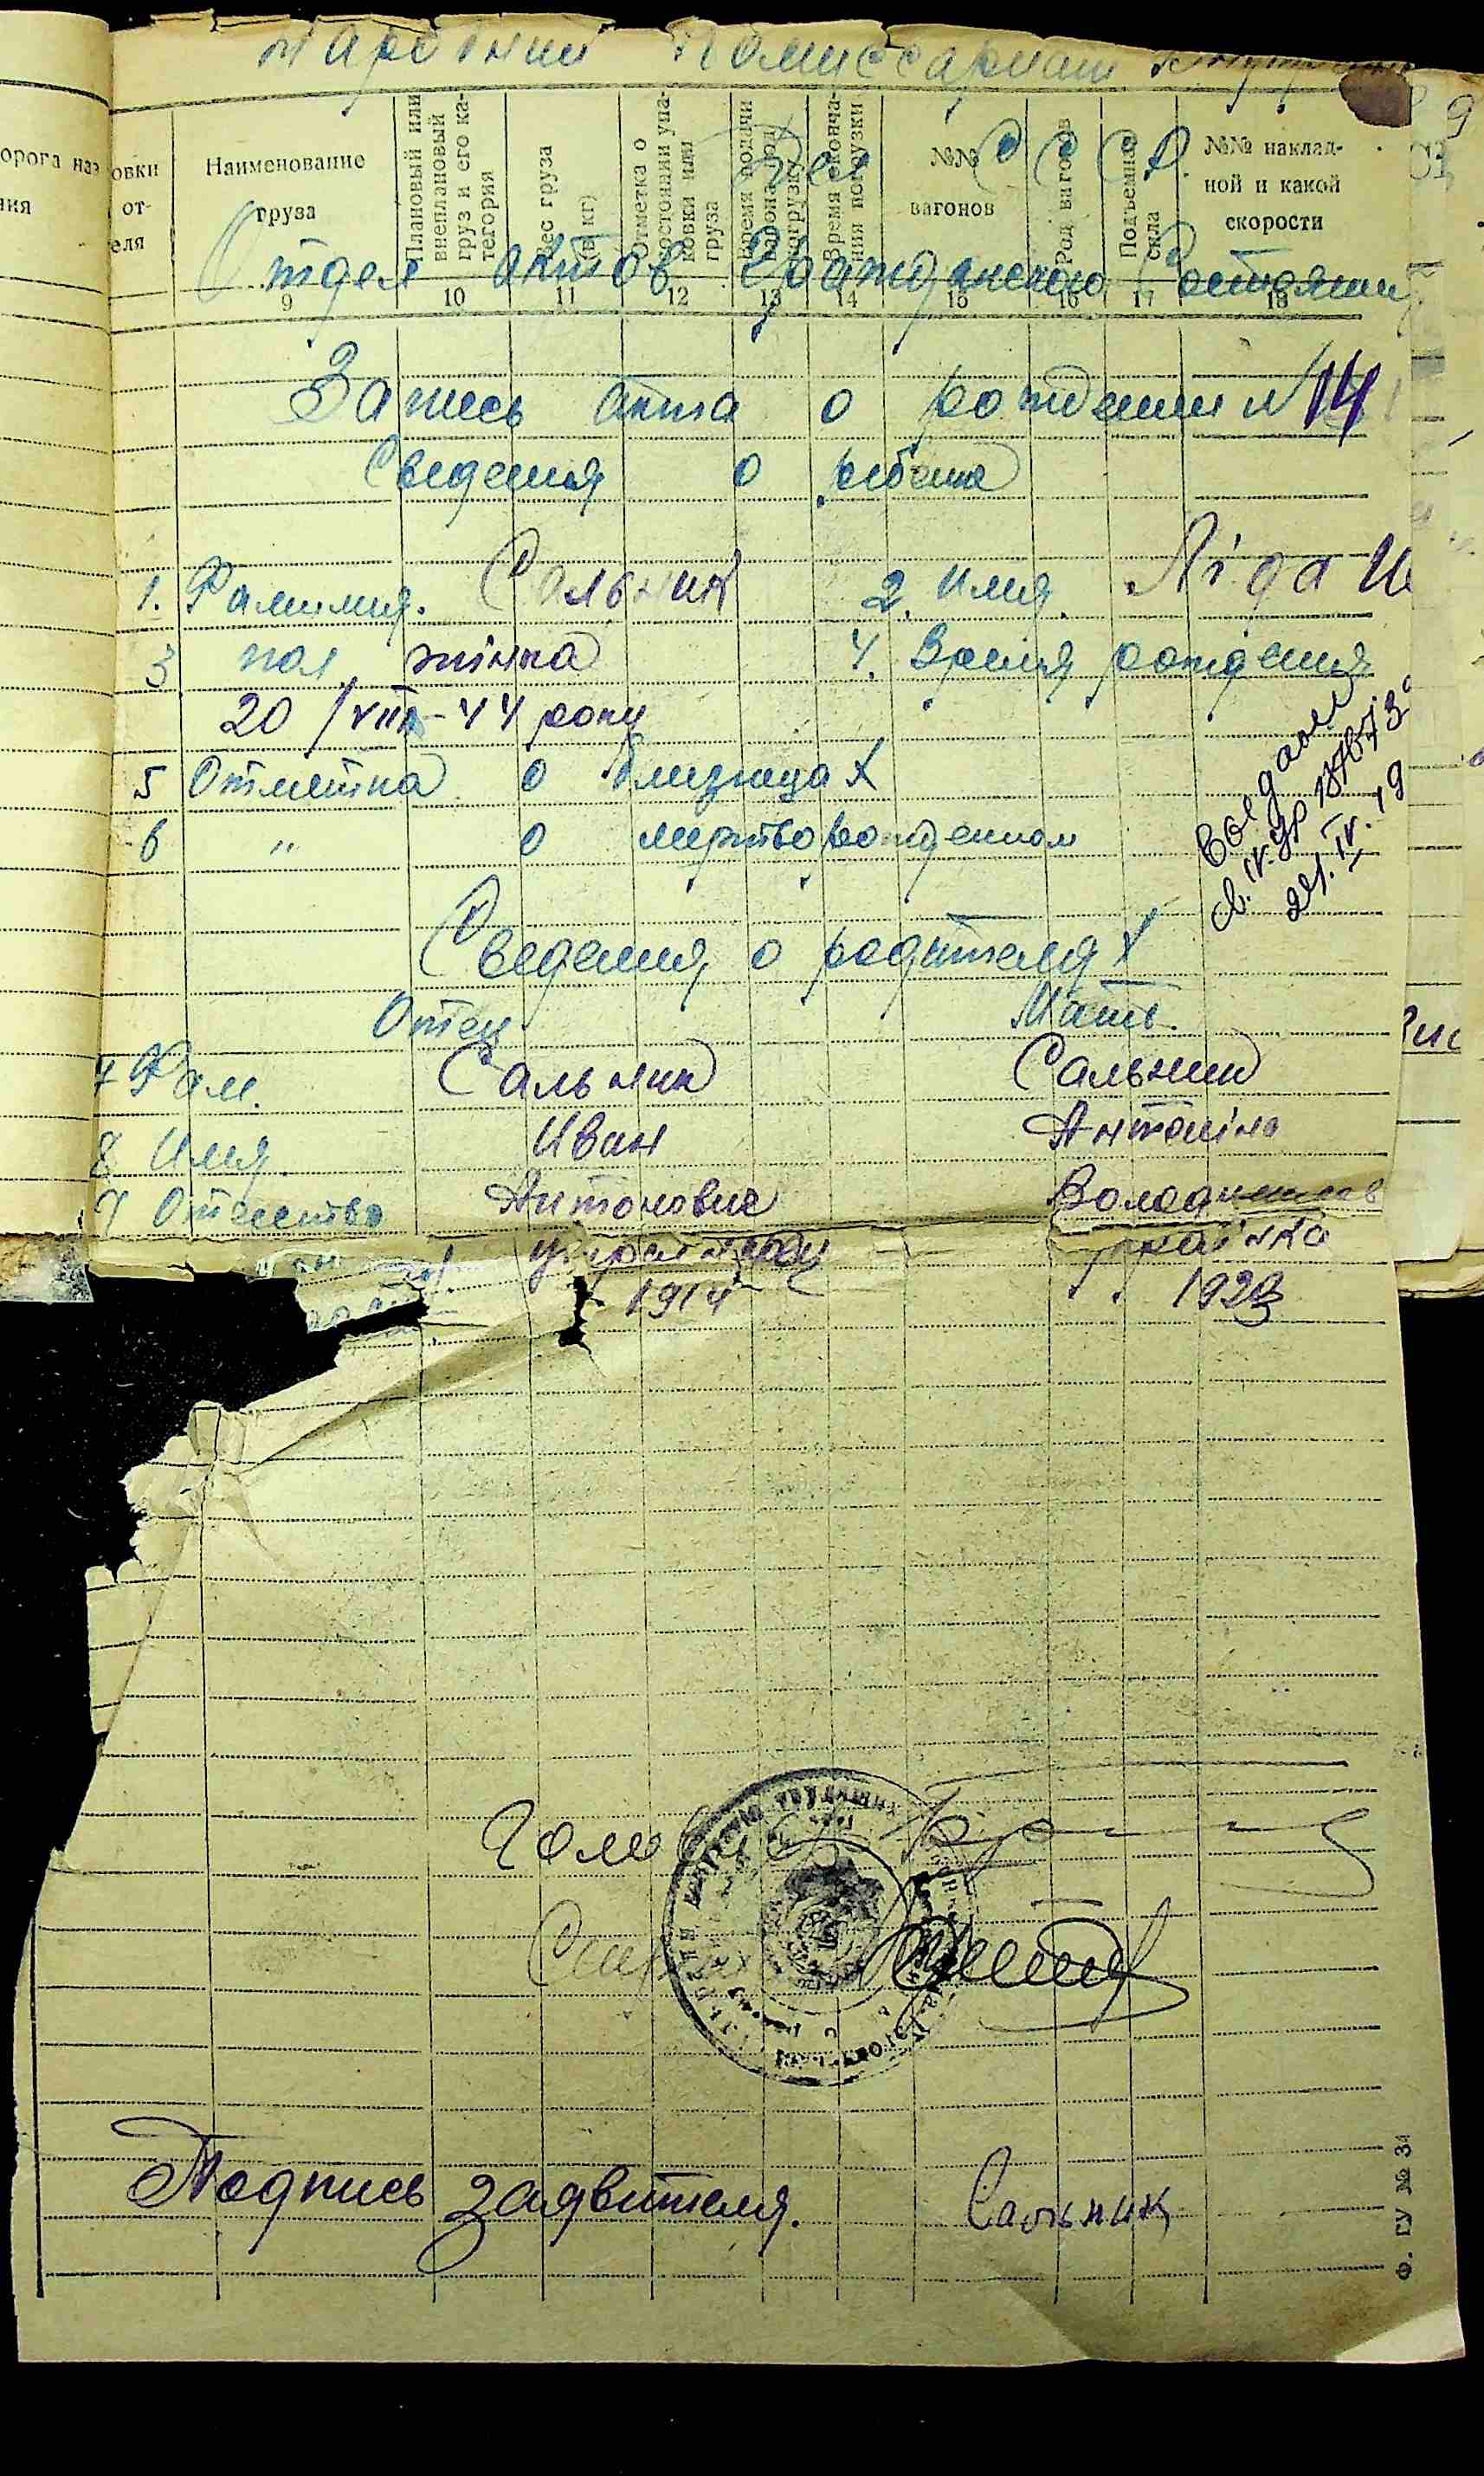 Народний Комиссариат Внутрен
9
Дел С С С Р.
орога наз
ния
овки
от-
еля
Наименование груза
Плановый или внеплановый груз и его категория
Вес груза (в кг)
Отметка о состоянии упаковки или груза
Время подачи вагона под погрузку
Время окончания погрузки
№№ вагонов
Род вагонов
Подъемная сила
№№ накладной и какой скорости
Отдел актов Гражданского Состояния
9 10 11 12 13 14 15 16 17 18
Запись акта о рождении № 14
Сведения о ребенке
1. Фамилия. Сальник 2. Имя. Ліда И
3 пол жінка 4. Время рождения
20/VIII-44 року
5 Отметка о близнецах
6 " о мертворожденном
24. IV. 19
Сведения о родителях
Отец Мать.
7 Фам. Сальник Сальник
8 Имя Иван Антоніна
9 Отчество Антонович
українка
1914 1923
Голова с/р
Секр
Подпись заявителя. Сальник
Ф. ГУ № 34